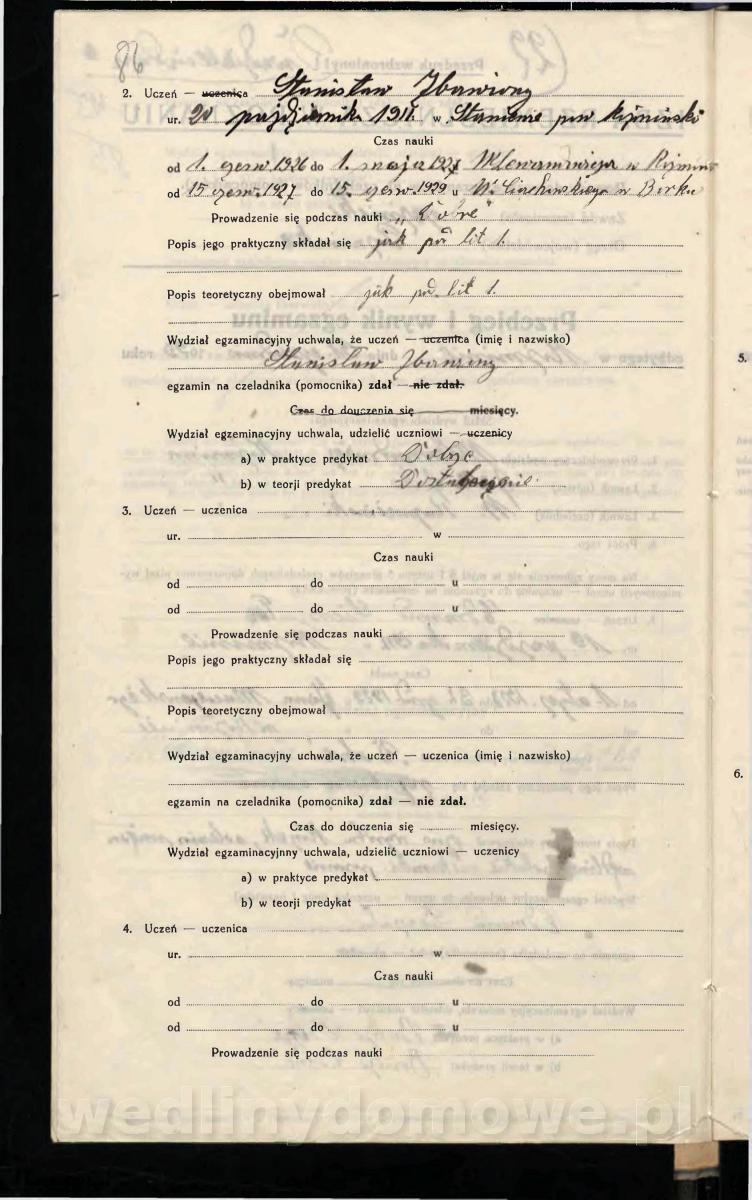 86
2. Uczeń — uczenica Stanisław Zbawiony
ur. 20 października 1911. w Stamienie pow Rypiński
Czas nauki
od 1. czerw. 1926 do 1. maja 1927 w Rypinie
od 15 czerw. 1927 do 15. czerw. 1929 u W. Ciachowskiego w Borku
Prowadzenie się podczas nauki „Dobre"
Popis jego praktyczny składał się jak pod lit 1.
Popis teoretyczny obejmował jak pod. lit 1.
Wydział egzaminacyjny uchwala, że uczeń — uczenica (imię i nazwisko)
Stanisław Zbawiony
egzamin na czeladnika (pomocnika) zdał — nie zdał.
Czas do douczenia się miesięcy.
Wydział egzeminacyjny uchwala, udzielić uczniowi — uczenicy
a) w praktyce predykat Dobrze
b) w teorji predykat Dostatecznie.
3. Uczeń — uczenica
ur. w
Czas nauki
od do u
od do u
Prowadzenie się podczas nauki
Popis jego praktyczny składał się
Popis teoretyczny obejmował
Wydział egzaminacyjny uchwala, że uczeń — uczenica (imię i nazwisko)
egzamin na czeladnika (pomocnika) zdał — nie zdał.
Czas do douczenia się miesięcy.
Wydział egzaminacyjnny uchwala, udzielić uczniowi — uczenicy
a) w praktyce predykat
b) w teorji predykat
4. Uczeń — uczenica
ur. w
Czas nauki
od do u
od do u
Prowadzenie się podczas nauki
5.
6.
wedlinydomowe.pl